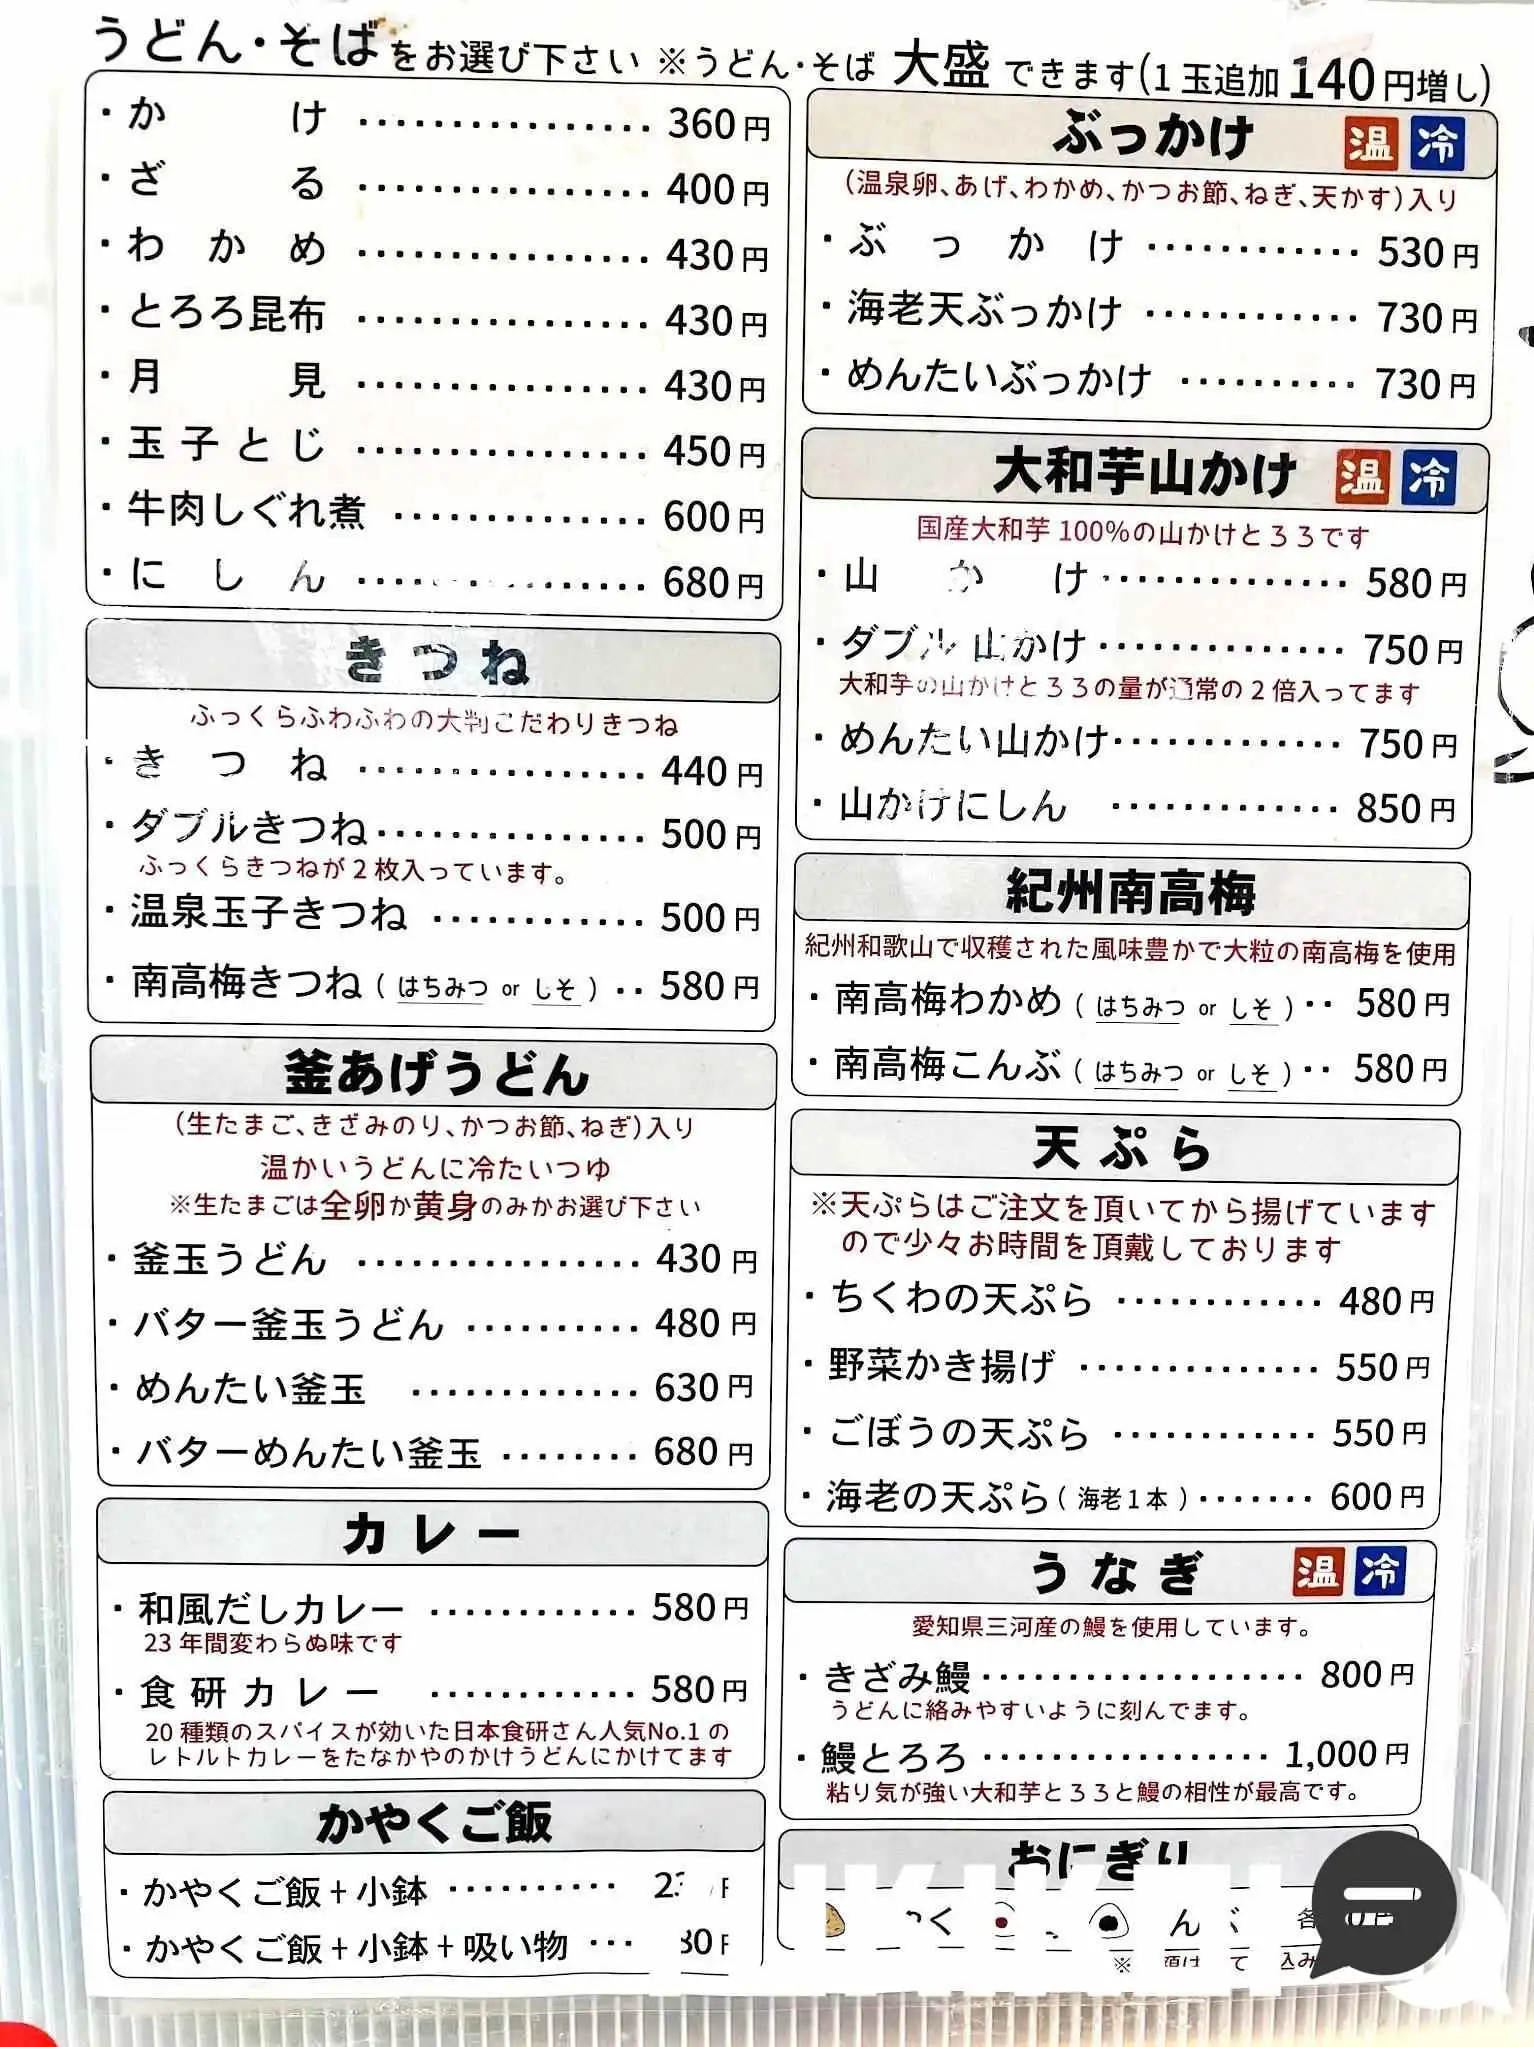 うどん・そばをお選び下さい ※うどん・そば 大盛 できます(1玉追加 140円増し)
・かけ ……………… 360円
・ざる ……………… 400円
・わかめ ……………… 430円
・とろろ昆布 ……………… 430円
・月見 ……………… 430円
・玉子とじ ……………… 450円
・牛肉しぐれ煮 …………… 600円
・にしん ……………… 680円
きつね
ふっくらふわふわの大判こだわりきつね
・きつね ……………… 440円
・ダブルきつね …………… 500円
ふっくらきつねが2枚入っています。
・温泉玉子きつね ………… 500円
・南高梅きつね ( はちみつ or しそ ) ‥ 580円
釜あげうどん
(生たまご、きざみのり、かつお節、ねぎ)入り
温かいうどんに冷たいつゆ
※生たまごは全卵か黄身のみかお選び下さい
・釜玉うどん …………… 430円
・バター釜玉うどん ……… 480円
・めんたい釜玉 ………… 630円
・バターめんたい釜玉 …… 680円
カレー
・和風だしカレー ………… 580円
23年間変わらぬ味です
・食研カレー ………… 580円
20種類のスパイスが効いた日本食研さん人気No.1の
レトルトカレーをたなかやのかけうどんにかけてます
かやくご飯
・かやくご飯+小鉢 ………
・かやくご飯+小鉢+吸い物 …
ぶっかけ 温 冷
(温泉卵、あげ、わかめ、かつお節、ねぎ、天かす)入り
・ぶっかけ ………… 530円
・海老天ぶっかけ ………… 730円
・めんたいぶっかけ ……… 730円
大和芋山かけ 温 冷
国産大和芋100%の山かけとろろです
・山かけ …………… 580円
・ダブル山かけ …………… 750円
大和芋の山かけとろろの量が通常の2倍入ってます
・めんたい山かけ ………… 750円
・山かけにしん ………… 850円
紀州南高梅
紀州和歌山で収穫された風味豊かで大粒の南高梅を使用
・南高梅わかめ ( はちみつ or しそ ) ‥ 580円
・南高梅こんぶ ( はちみつ or しそ ) ‥ 580円
天ぷら
※天ぷらはご注文を頂いてから揚げています
ので少々お時間を頂戴しております
・ちくわの天ぷら ………… 480円
・野菜かき揚げ ………… 550円
・ごぼうの天ぷら ………… 550円
・海老の天ぷら( 海老1本 ) ……… 600円
うなぎ 温 冷
愛知県三河産の鰻を使用しています。
・きざみ鰻 ……………… 800円
うどんに絡みやすいように刻んでます。
・鰻とろろ ……………… 1,000円
粘り気が強い大和芋とろろと鰻の相性が最高です。
おにぎり